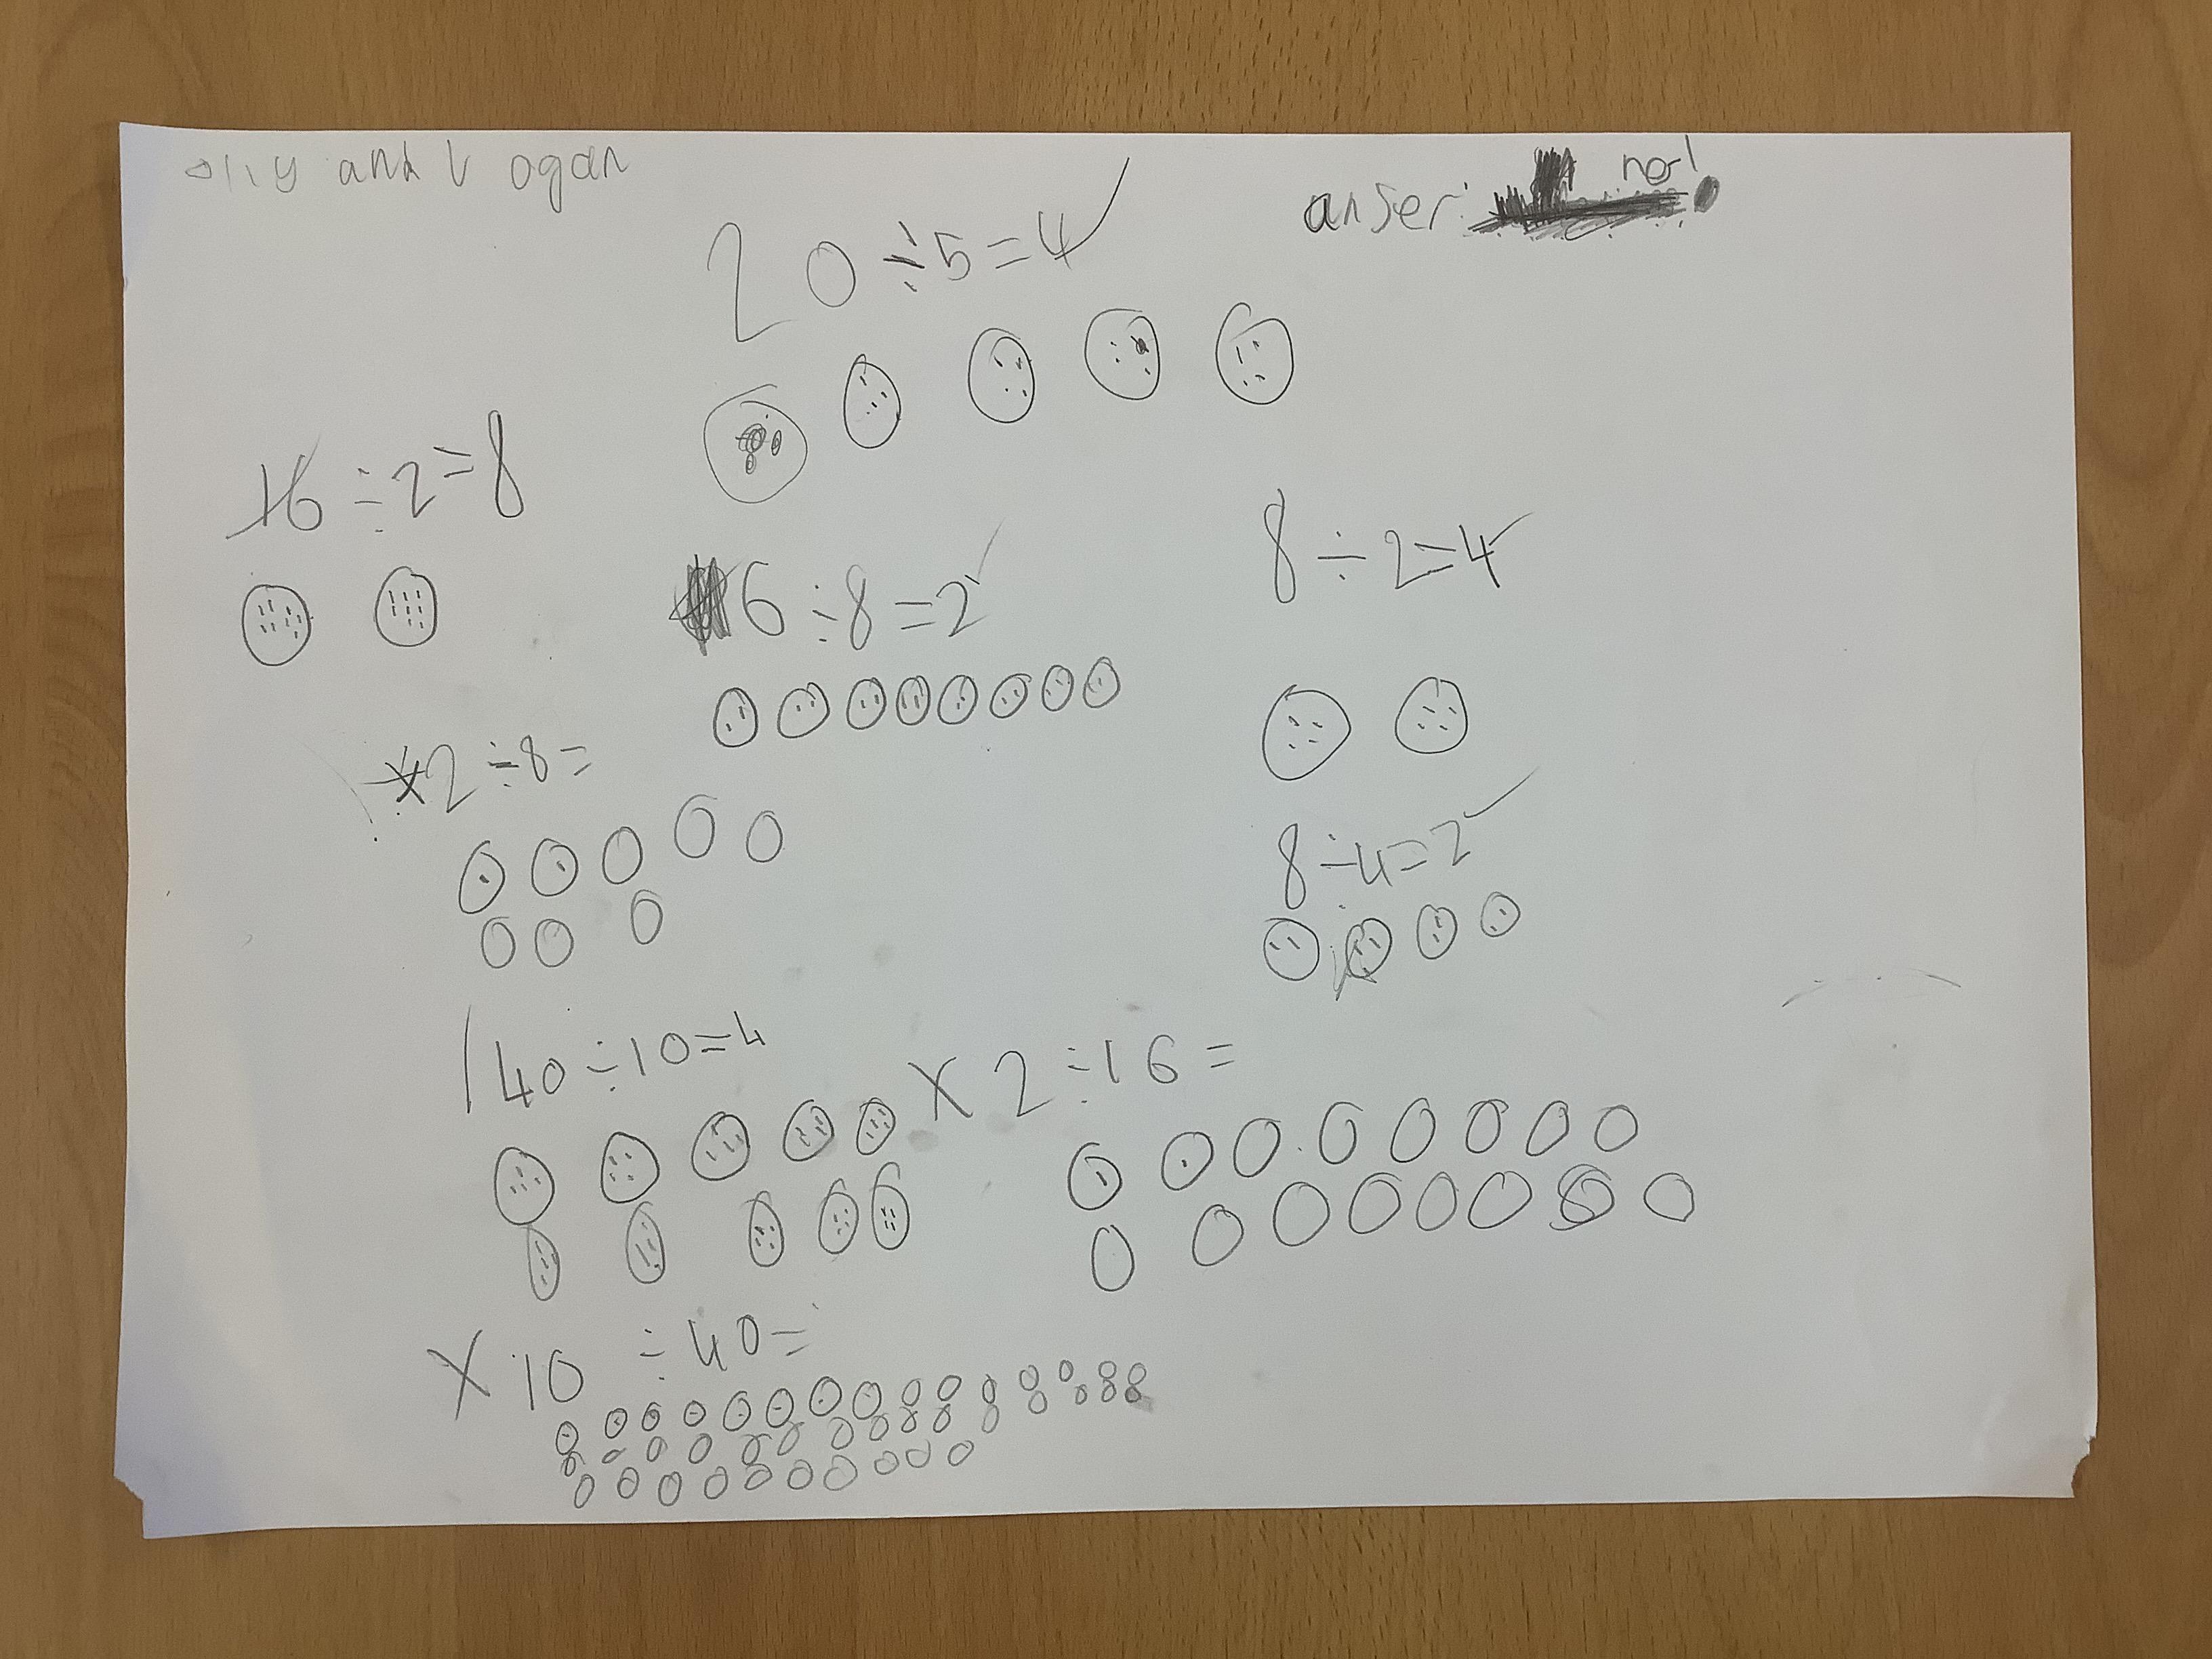 olly and Logan
anser: no!
20 ÷ 5 = 4 ✓
16 ÷ 2 = 8
16 ÷ 8 = 2 ✓
8 ÷ 2 = 4 ✓
✗ 2 ÷ 8 =
8 ÷ 4 = 2 ✓
40 ÷ 10 = 4
✗ 2 ÷ 16 =
✗ 10 ÷ 40 =